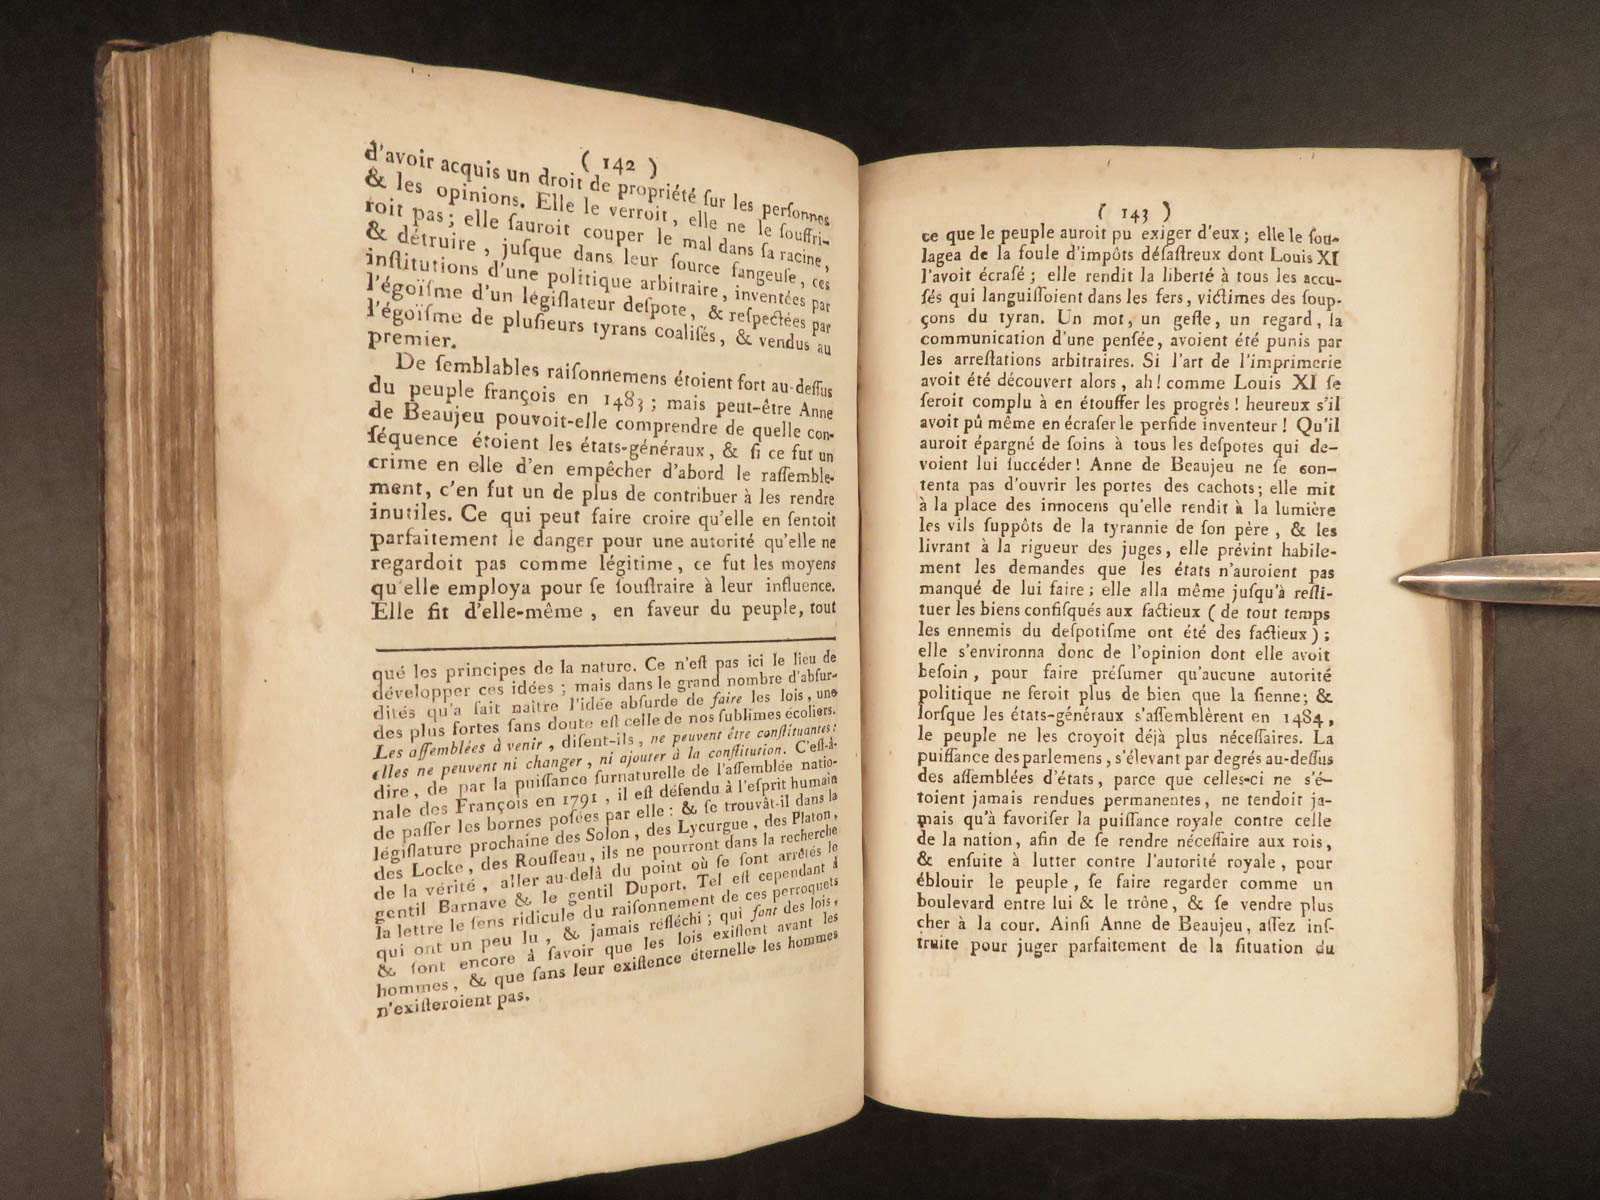 ( 142 )
d'avoir acquis un droit de propriété ſur les perſonnes
& les opinions. Elle le verroit, elle ne le ſouffri-
roit pas; elle ſauroit couper le mal dans ſa racine,
& détruire, juſque dans leur ſource fangeuſe, ces
inſtitutions d'une politique arbitraire, inventées par
l'égoïſme d'un légiſlateur deſpote, & reſpectées par
l'égoïſme de pluſieurs tyrans coaliſés, & vendus au
premier.
De ſemblables raiſonnemens étoient fort au-deſſus
du peuple françois en 1483; mais peut-être Anne
de Beaujeu pouvoit-elle comprendre de quelle con-
ſéquence étoient les états-généraux, & ſi ce fut un
crime en elle d'en empêcher d'abord le raſſemble-
ment, c'en fut un de plus de contribuer à les rendre
inutiles. Ce qui peut faire croire qu'elle en ſentoit
parfaitement le danger pour une autorité qu'elle ne
regardoit pas comme légitime, ce fut les moyens
qu'elle employa pour ſe ſouſtraire à leur influence.
Elle fit d'elle-même, en faveur du peuple, tout
qué les principes de la nature. Ce n'eſt pas ici le lieu de
développer ces idées; mais dans le grand nombre d'abſur-
dités qu'a fait naître l'idée abſurde de faire les lois, une
des plus fortes ſans doute eſt celle de nos ſublimes écoliers.
Les aſſemblées à venir, diſent-ils, ne peuvent être conſtituantes:
elles ne peuvent ni changer, ni ajouter à la conſtitution. C'eſt-à-
dire, de par la puiſſance ſurnaturelle de l'aſſemblée natio-
nale des François en 1791, il eſt défendu à l'eſprit humain
de paſſer les bornes poſées par elle: & ſe trouvât-il dans la
légiſlature prochaine des Solon, des Lycurgue, des Platon,
des Locke, des Rouſſeau, ils ne pourront dans la recherche
de la vérité, aller au-delà du point où ſe ſont arrêtés le
gentil Barnave & le gentil Duport. Tel eſt cependant à
la lettre le ſens ridicule du raiſonnement de ces perroquets
qui ont un peu lu, & jamais réfléchi; qui font des lois,
& ſont encore à ſavoir que les lois exiſtent avant les
hommes, & que ſans leur exiſtence éternelle les hommes
n'exiſteroient pas.
( 143 )
ce que le peuple auroit pu exiger d'eux; elle le ſou-
lagea de la foule d'impôts déſaſtreux dont Louis XI
l'avoit écraſé; elle rendit la liberté à tous les accu-
ſés qui languiſſoient dans les fers, victimes des ſoup-
çons du tyran. Un mot, un geſte, un regard, la
communication d'une penſée, avoient été punis par
les arreſtations arbitraires. Si l'art de l'imprimerie
avoit été découvert alors, ah! comme Louis XI ſe
ſeroit complu à en étouffer les progrès! heureux s'il
avoit pû même en écraſer le perfide inventeur! Qu'il
auroit épargné de ſoins à tous les deſpotes qui de-
voient lui ſuccéder! Anne de Beaujeu ne ſe con-
tenta pas d'ouvrir les portes des cachots; elle mit
à la place des innocens qu'elle rendit à la lumière
les vils ſuppôts de la tyrannie de ſon père, & les
livrant à la rigueur des juges, elle prévint habile-
ment les demandes que les états n'auroient pas
manqué de lui faire; elle alla même juſqu'à reſti-
tuer les biens confiſqués aux factieux (de tout temps
les ennemis du deſpotiſme ont été des factieux);
elle s'environna donc de l'opinion dont elle avoit
beſoin, pour faire préſumer qu'aucune autorité
politique ne feroit plus de bien que la ſienne; &
lorſque les états-généraux s'aſſemblèrent en 1484,
le peuple ne les croyoit déjà plus néceſſaires. La
puiſſance des parlemens, s'élevant par degrés au-deſſus
des aſſemblées d'états, parce que celles-ci ne s'é-
toient jamais rendues permanentes, ne tendoit ja-
mais qu'à favoriſer la puiſſance royale contre celle
de la nation, afin de ſe rendre néceſſaire aux rois,
& enſuite à lutter contre l'autorité royale, pour
éblouir le peuple, ſe faire regarder comme un
boulevard entre lui & le trône, & ſe vendre plus
cher à la cour. Ainſi Anne de Beaujeu, aſſez inſ-
truite pour juger parfaitement de la ſituation du